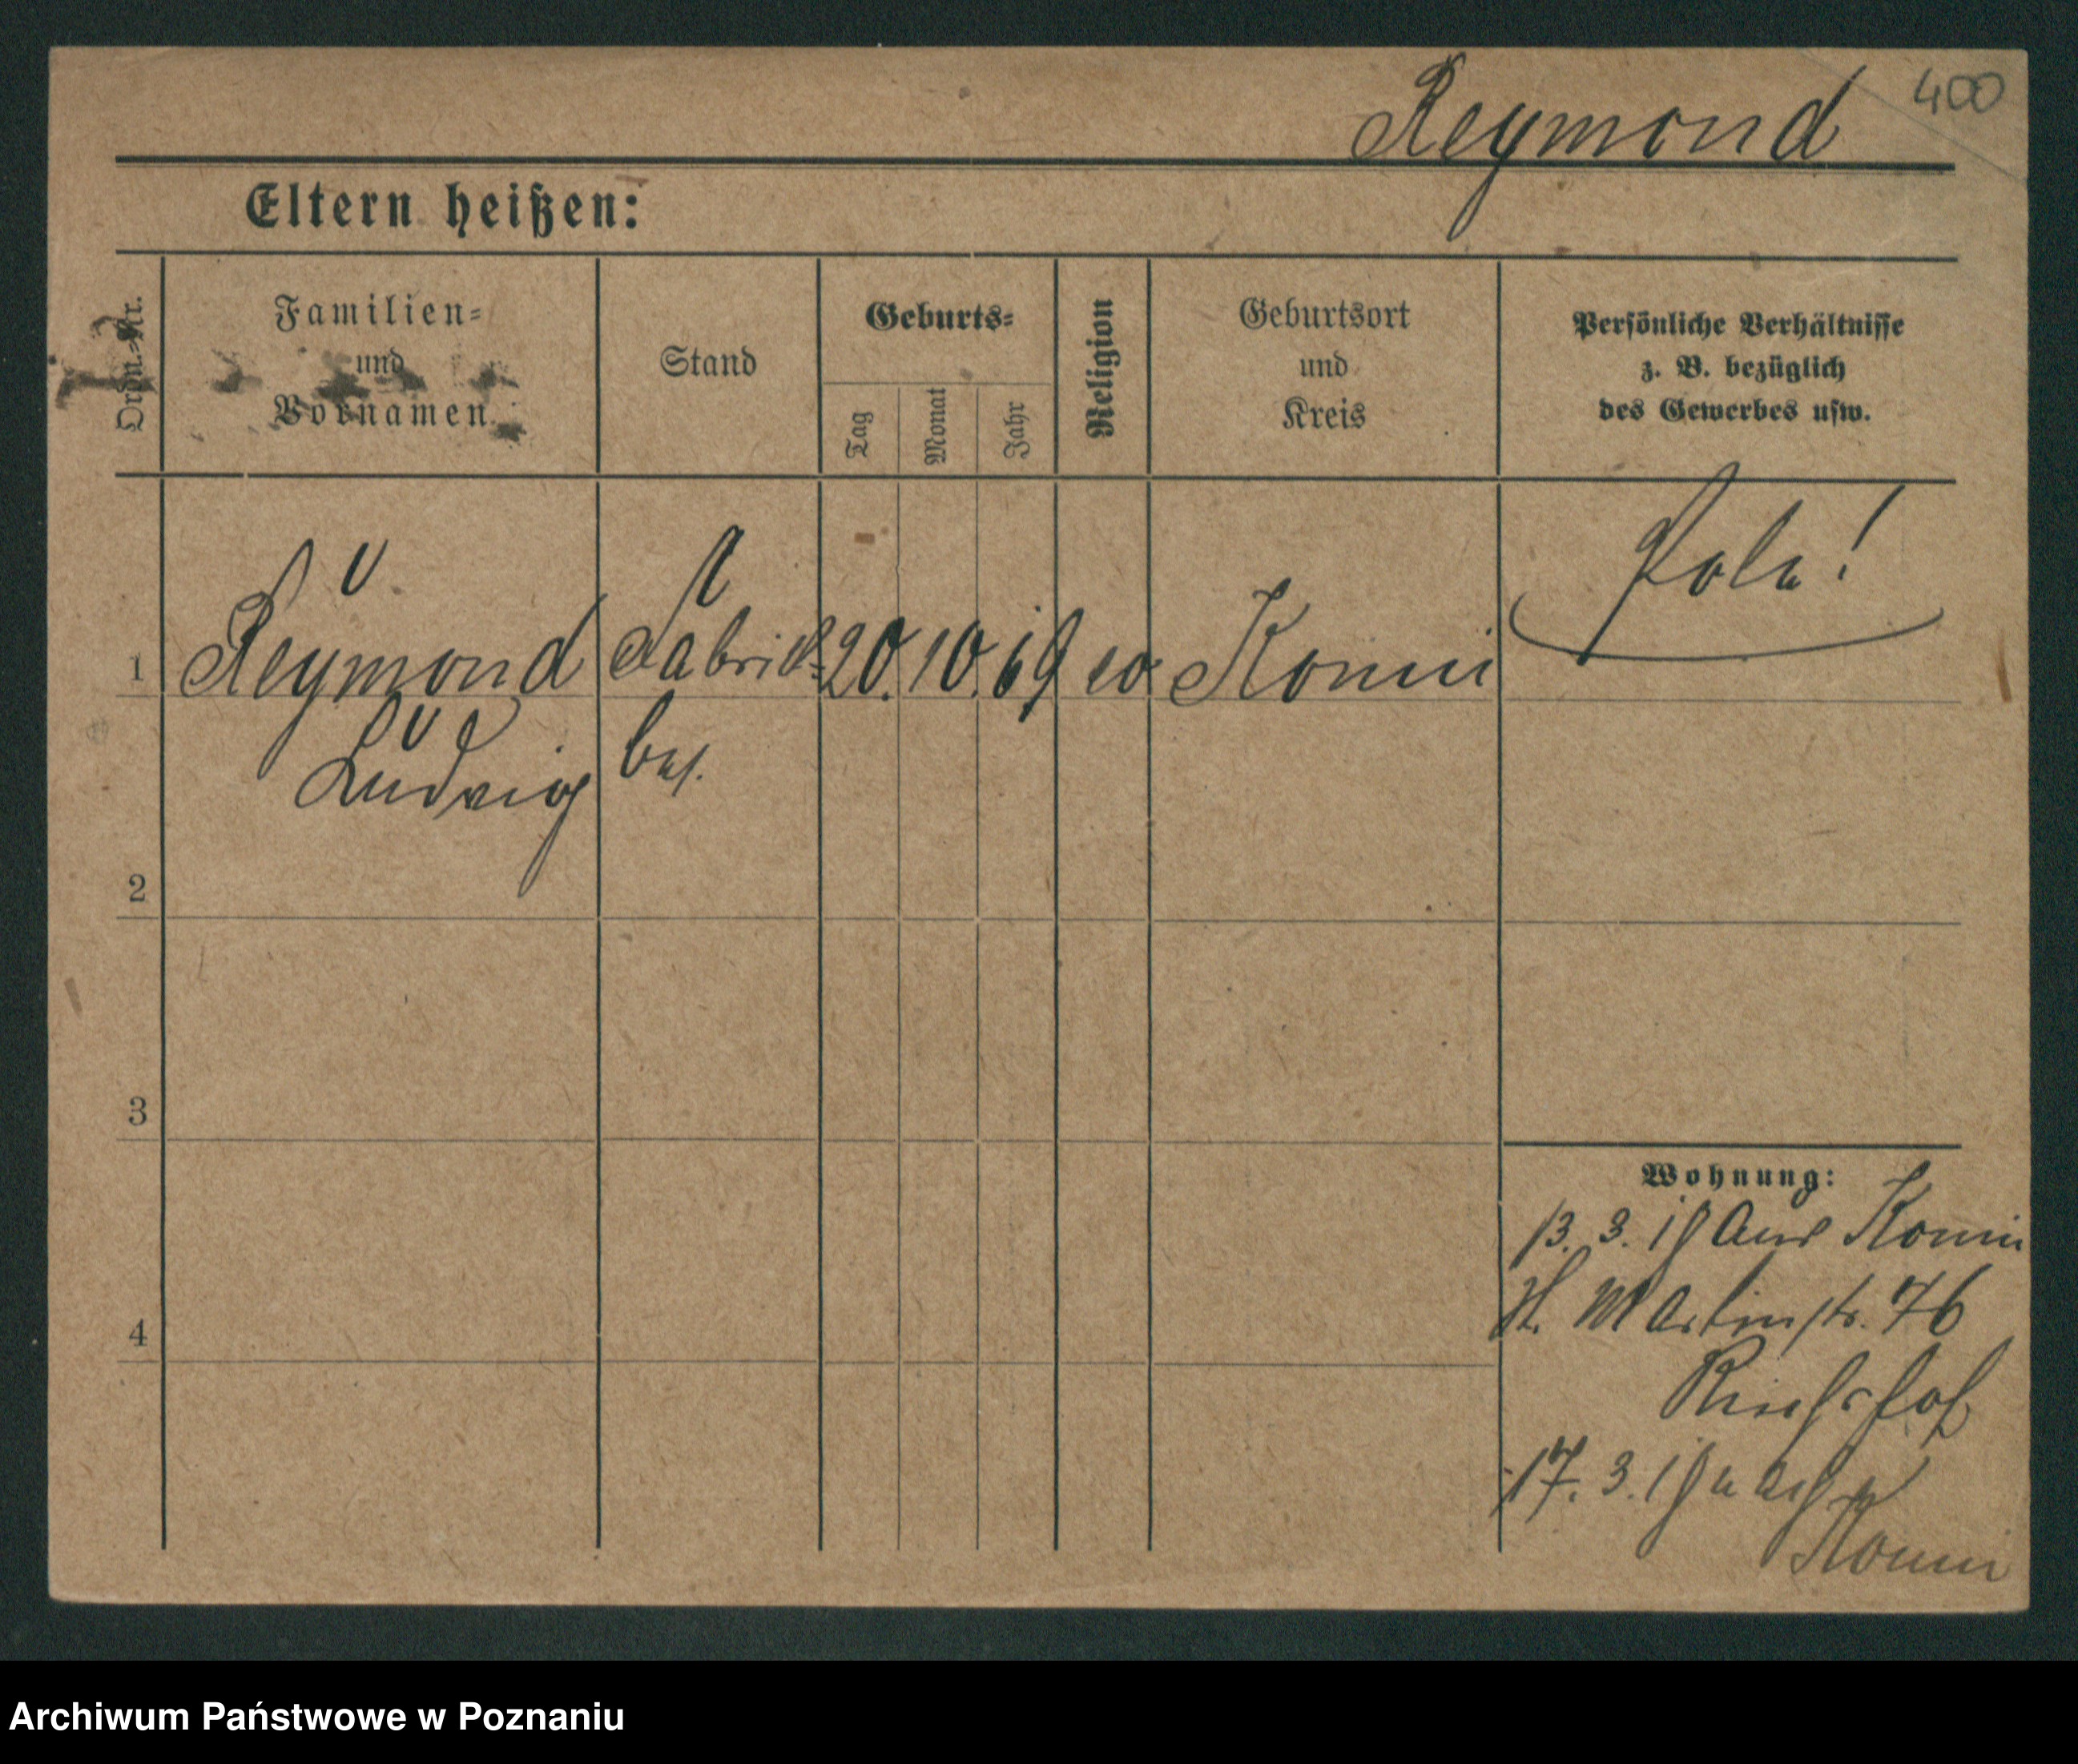 Reymond
400
Eltern heißen:
Ordn.-Nr.
Familien-
und
Vornamen
Stand
Geburts-
Tag
Monat
Jahr
Religion
Geburtsort
und
Kreis
Persönliche Verhältnisse
z. B. bezüglich
des Gewerbes usw.
1
Reymond
Ludwig
Fabrik-
bes.
20. 10. 69
ev
Konin
Pole!
2
3
4
Wohnung:
13. 3. 19 aus Konin
St. Martinstr. 76
Reichshof
17. 3. 19 nach
Konin
Archiwum Państwowe w Poznaniu